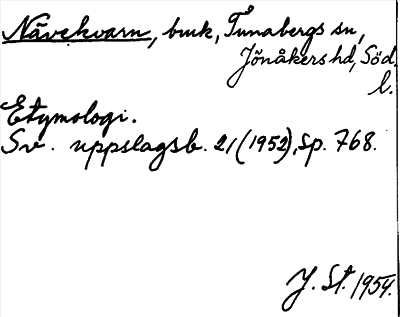 Nävekvarn, bruk, Tunabergs sn,
Jönåkers hd, Söd.
l.
Etymologi.
Sv. uppslagsb. 21 (1952), sp. 768.
J. St. 1954.